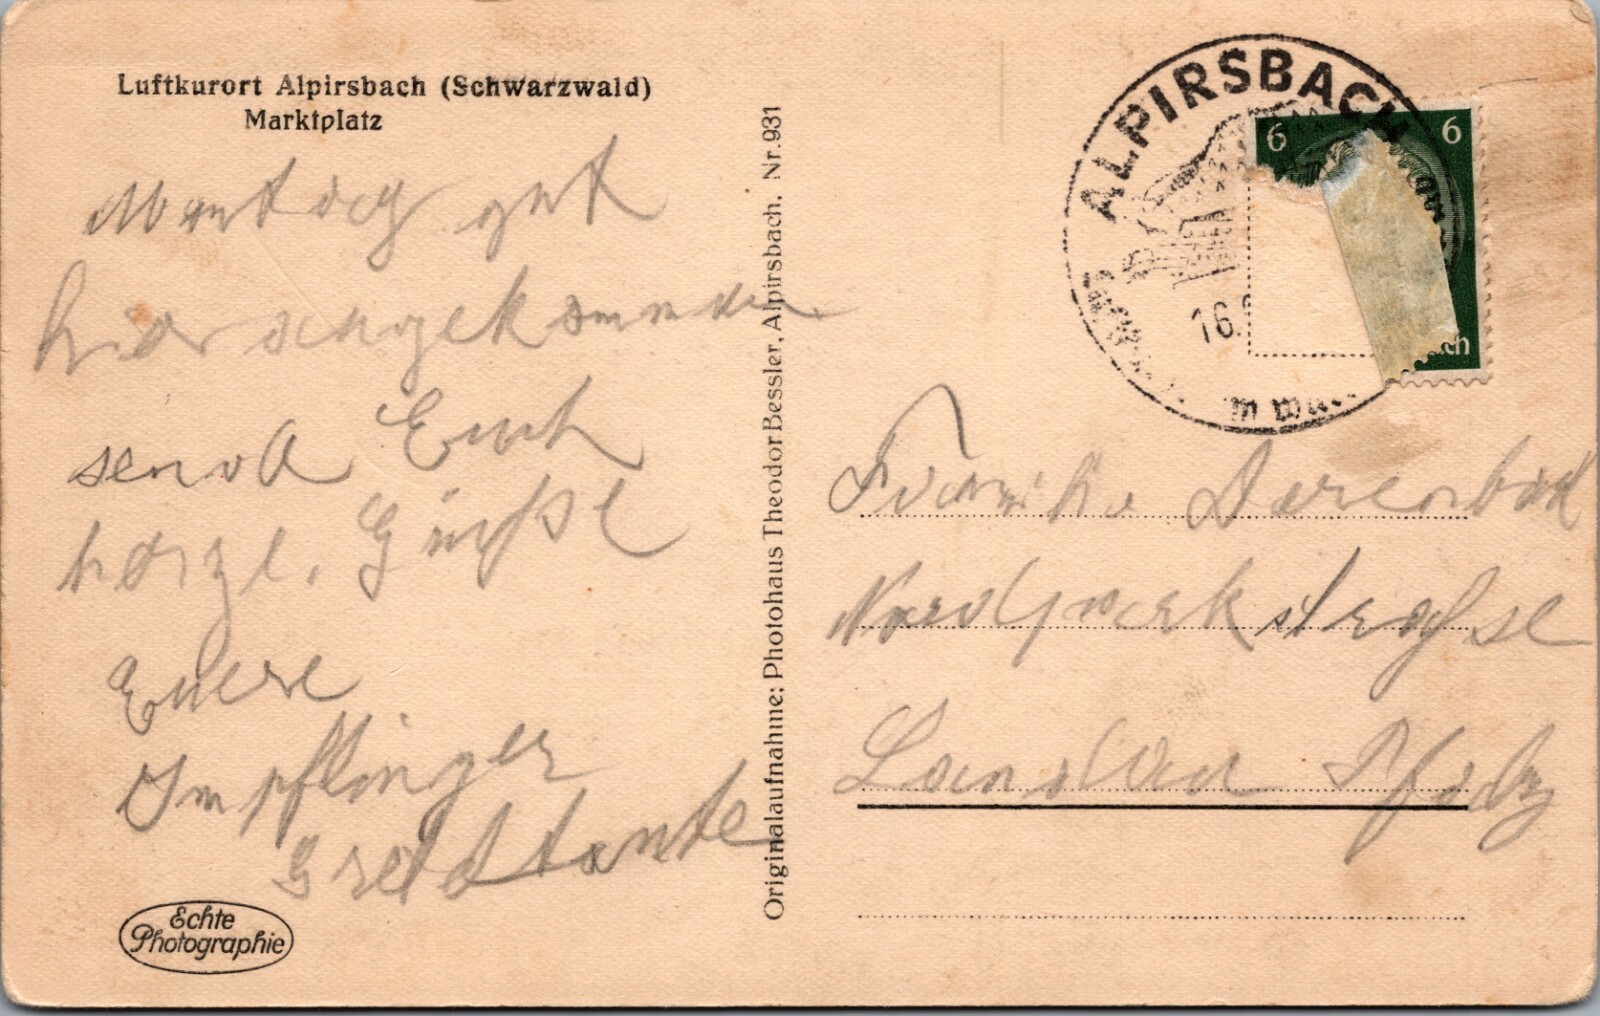 Luftkurort Alpirsbach (Schwarzwald)
Marktplatz
Montag gut
hier angekommen
send Euch
herzl. Grüße
Euere
Impflinger
Greteltante
Echte
Photographie
Originalaufnahme: Photohaus Theodor Bessler, Alpirsbach. Nr. 931
ALPIRSBACH
16.
6 6
Familie
Nordparkstraße
Landau Pfalz